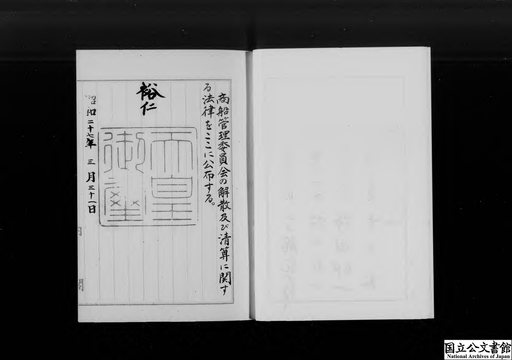 商船管理委員会の解散及び清算に関す
る法律をここに公布する。
裕仁
天皇御璽
昭和二十七年三月三十一日
国立公文書館
National Archives of Japan